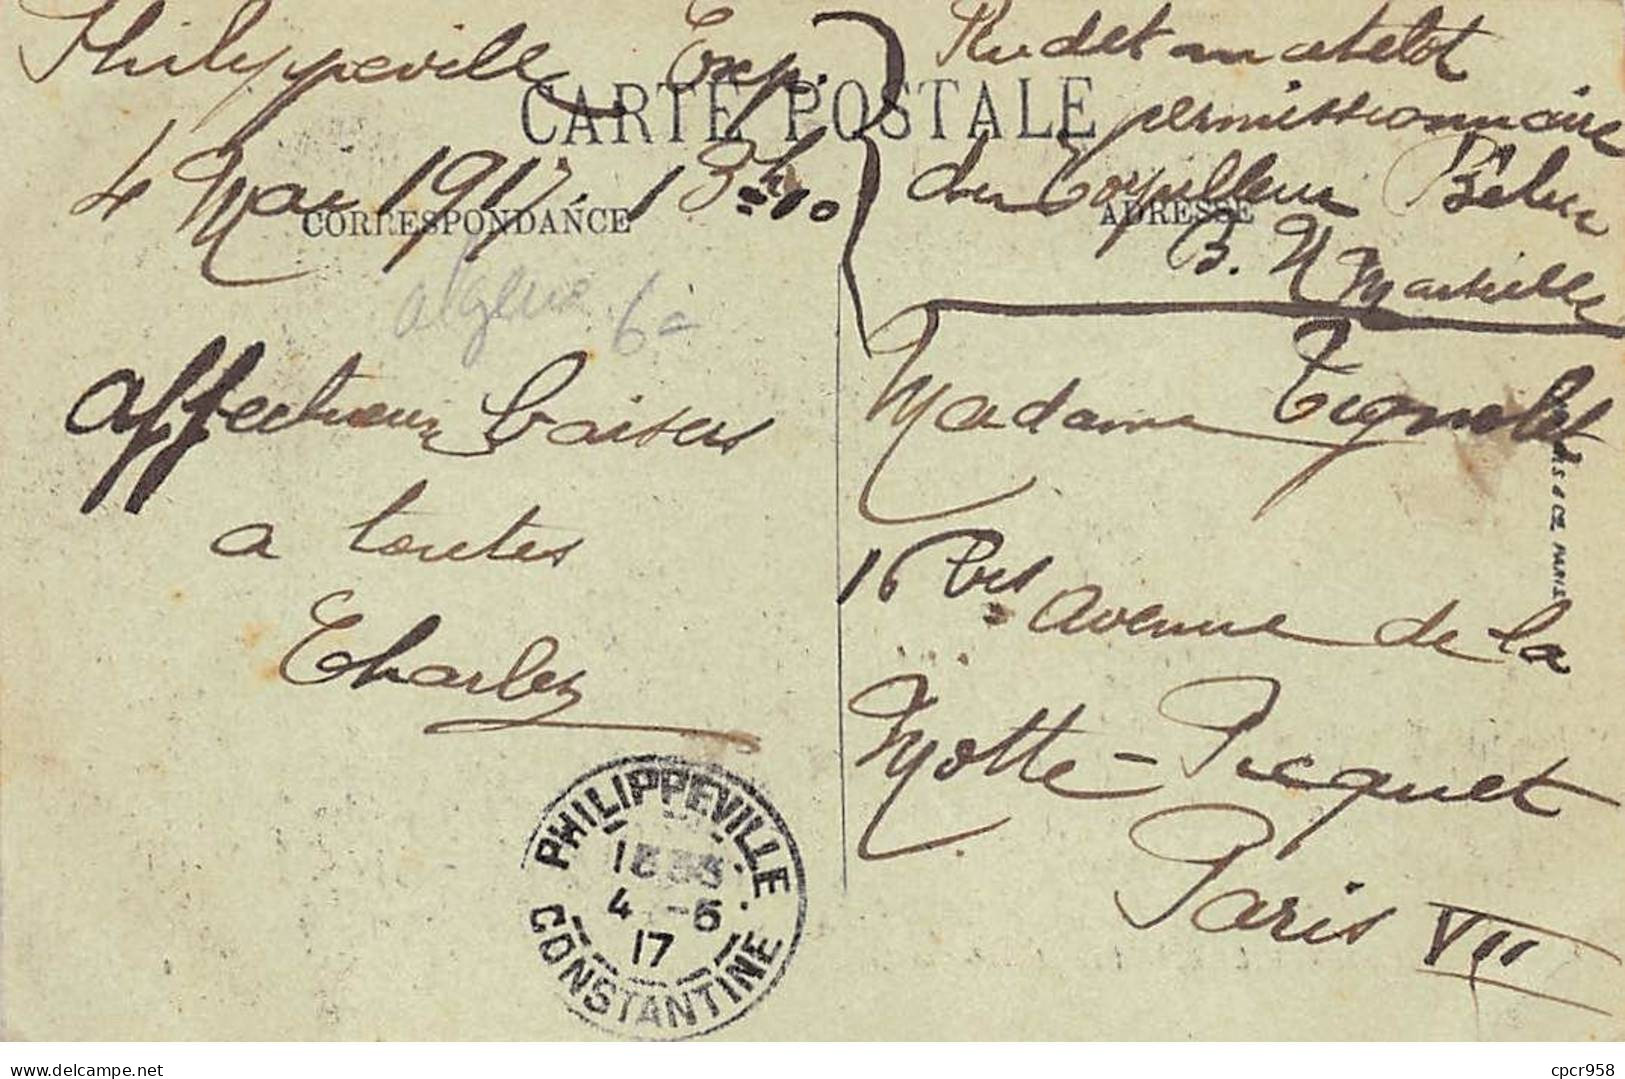 Philippeville Exp.
4 Mai 1917. 13h10
CARTE POSTALE
CORRESPONDANCE
Algérie 6=
affectueux baisers
a toutes
Charles
PHILIPPEVILLE
4 -5
17
CONSTANTINE
Rudet matelot
permissionnaire
du torpilleur Bélier
B. N Marseille
ADRESSE
Madame
16 bis avenue de la
Motte-Picquet
Paris VII
PARIS
cpcr958